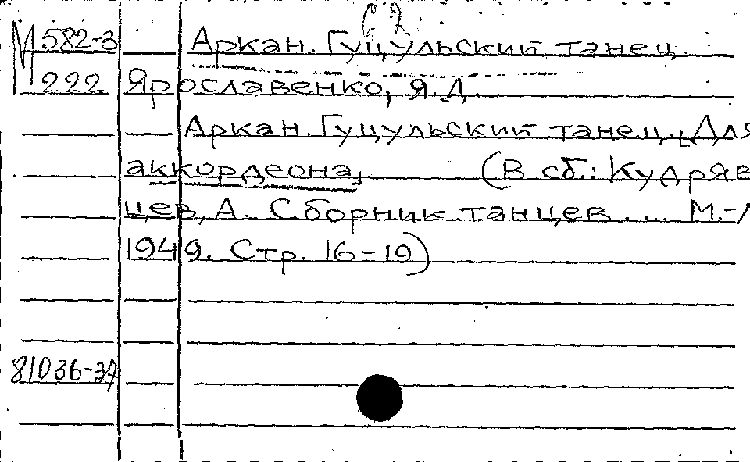 М 582-3 Аркан. Гуцульский танец.
222 Ярославенко, Я.Д.
Аркан. Гуцульский танец. [Для
аккордеона, (В сб.: Кудряв
цев, А. Сборник танцев... М.-Л
1949. Стр. 16-19)
81036-